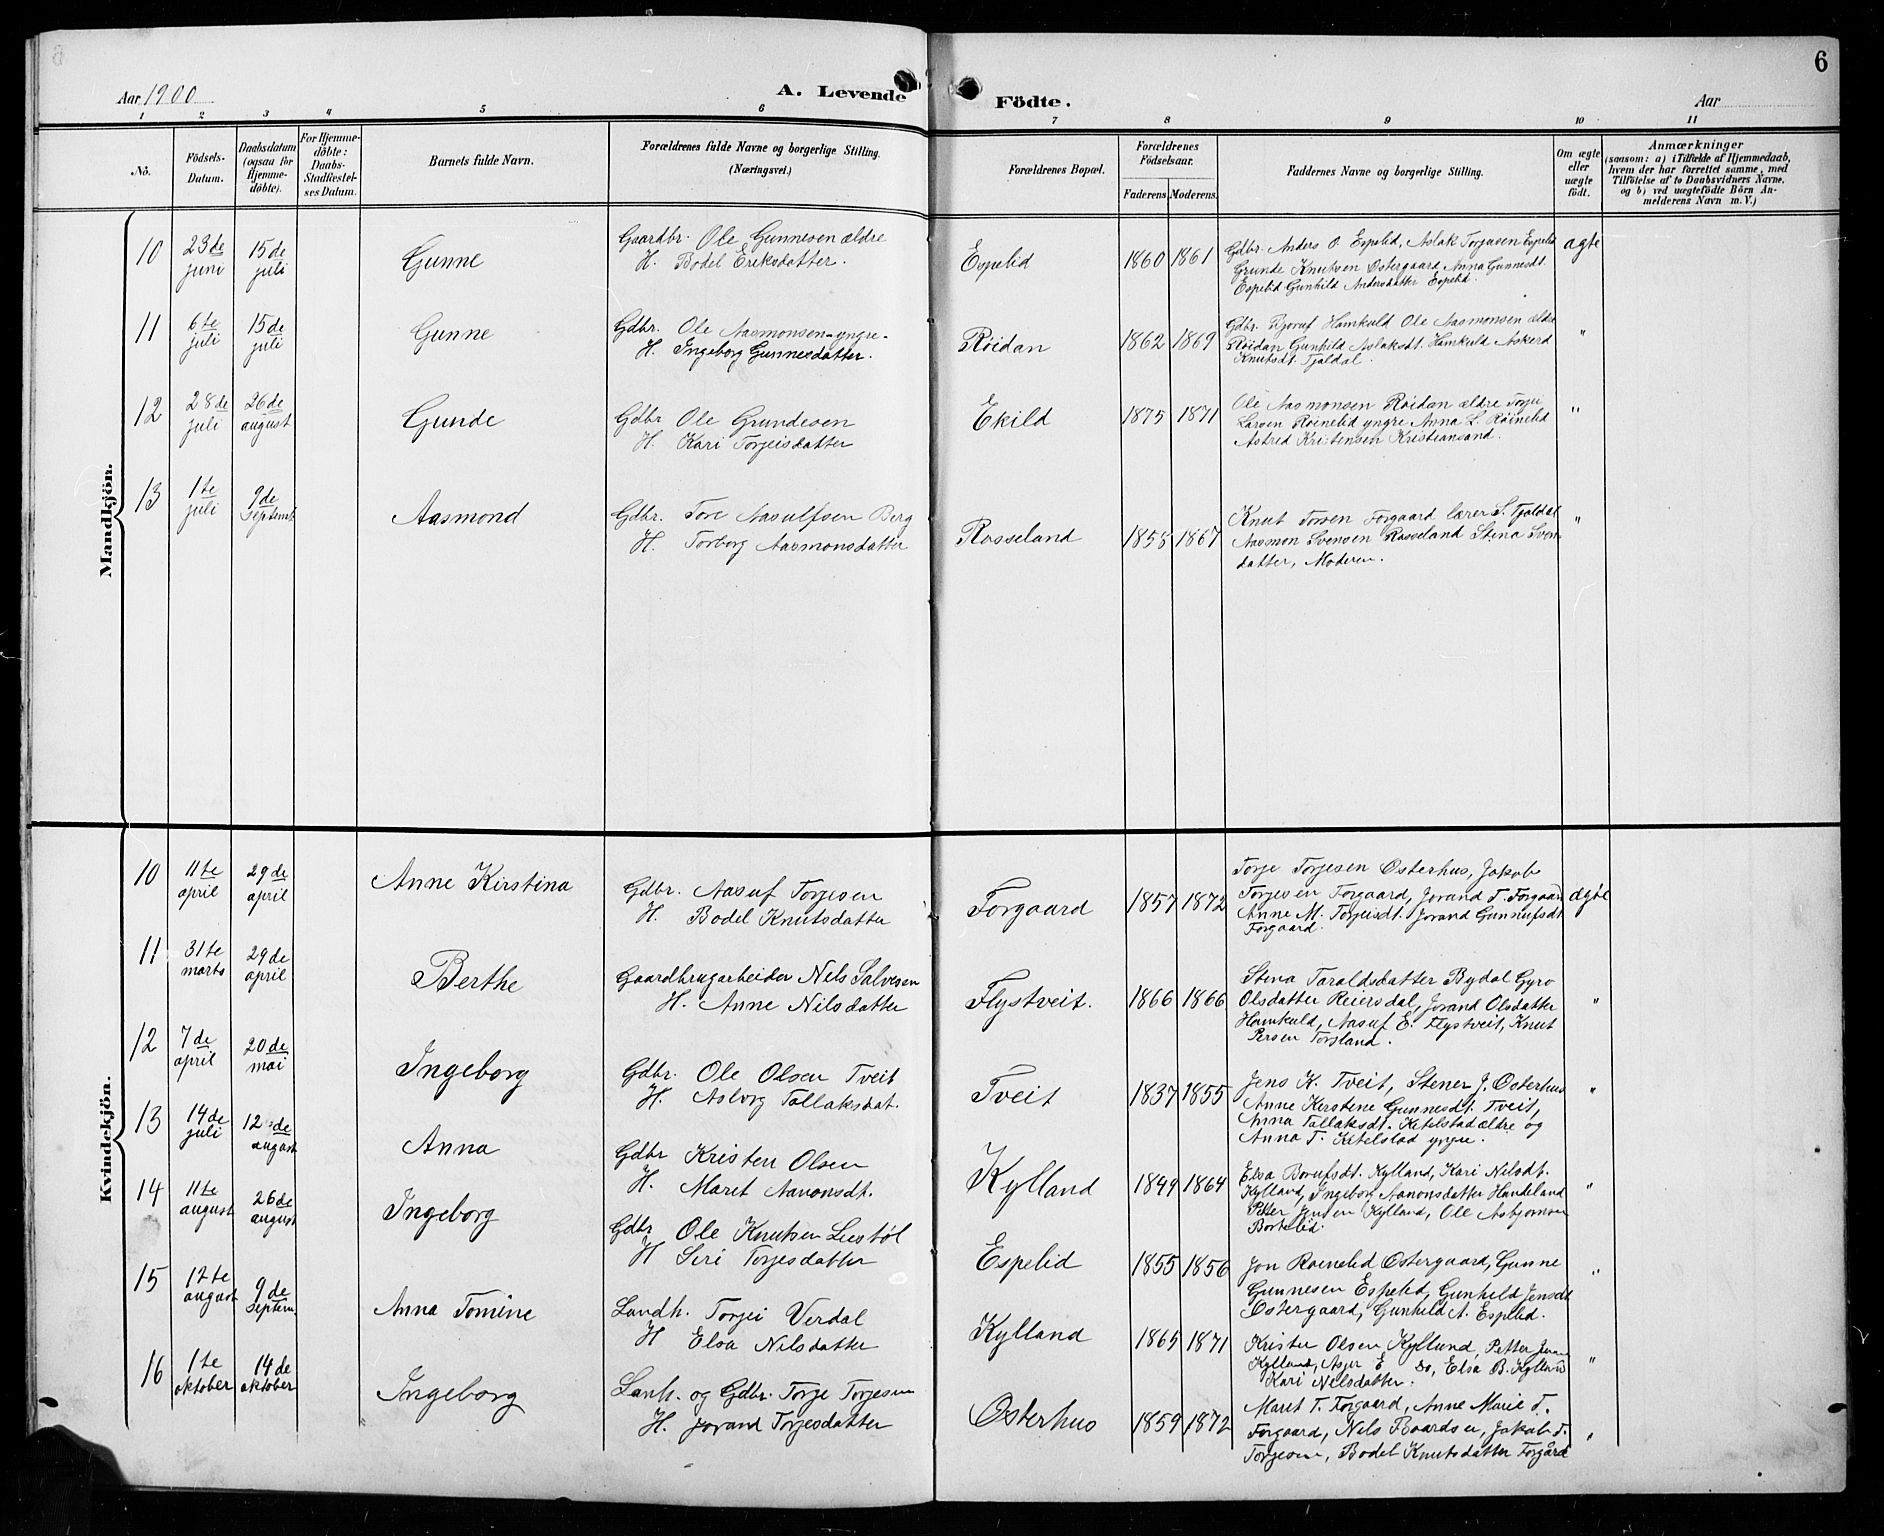 6
Aar 1900
A. Levende Födte.
Aar
1 2 3 4 5 6 7 8 9 10 11
No.
Födsels-Datum.
Daabsdatum (ogsaa for Hjemme-döbte).
For Hjemme-döbte: Daabs-Stadfestel-ses Datum.
Barnets fulde Navn.
Forældrenes fulde Navne og borgerlige Stilling. (Næringsvei.)
Forældrenes Bopæl.
Forældrenes Födselsaar.
Faderens. Moderens.
Faddernes Navne og borgerlige Stilling.
Om ægte eller uægte födt.
Anmærkninger
(saasom: a) i Tilfælde af Hjemmedaab, hvem der har forrettet samme, med Tilföielse af to Daabsvidners Navne, og b) ved uægtefödte Börn An-melderens Navn m. V.)
Mandkjön.
10 23de juni 15de juli Gunne
Gaardbr. Ole Gunnesen ældre
H. Bodel Eriksdatter.
Espelid 1860 1861
Gdbr. Anders O. Espelid, Aslak Torjusen Espelid
Grunde Knutsen Ostergaard Anna Gunnesdt.
Espelid Gunhild Andersdatter Espelid.
ægte
11 6te juli 15de juli Gunne
Gdbr. Ole Aasmonsen yngre
H. Ingeborg Gunnesdatter.
Röidan 1862 1869
Gdbr. Hamkuld Ole Aasmonsen ældre
Röidan Gunhild Aslaksdt. Hamkuld Askerd
Knutsdt. Tjaldal.
"
12 28de juli 26de august Gunde
Gdbr Ole Grundesen
H. Kari Torjeisdatter
Ekild 1875 1871
Ole Aasmonsen Röidan ældre Torjei
Larsen Röinelid yngre Anna L. Röinelid
Astred Kristensen Kristiansand.
"
13 1te juli 9de Septemb Aasmond
Gdbr. Tore Aasulfsen Berg
H. Torborg Aasmonsdatter
Rosseland 1858 1867
Knut Torsen Forgaard lærer S. Tjaldal
Aasmon Svensen Rosseland Stena Sven-
datter, Moderen.
"
Kvindekjön.
10 11te april 29de april Anne Kirstina
Gdbr. Aasuf Torjesen
H. Bodel Knutsdatter
Forgaard 1857 1872
Torje Torjesen Osterhus, Jakob
Torjesen Forgaard, Jorand T. Forgaard
Anne M. Torjeisdt. Jorand Gunnufsdt
Forgaard.
ægte
11 31te marts 29de april Berthe
Gaardbrugarbeider Nils Salvesen
H. Anne Nilsdatter
Flystveit. 1866 1866
Stena Taraldsdatter Bydal Gyro
Olsdatter Reiersdal, Jorand Olsdatter
Hamkuld, Aasuf E. Flystveit, Knut
Persen Torsland.
"
12 7de april 20de mai Ingeborg
Gdbr. Ole Olsen Tveit
H. Asborg Tallaksdat.
Tveit 1837 1855
Jens K. Tveit, Stener J. Osterhus
Anne Kerstene Gunnesdt. Tveit,
Anna Tallaksdt. Ketelstad ældre og
Anna T. Ketelstad yngre.
"
13 14de juli 12de august Anna
Gdbr Kristen Olsen
H. Maret Aanonsdt.
Kylland 1849 1864
Elsa Borufsdt. Kylland, Kari Nilsdt.
Kylland, Ingeborg Aanonsdatter Handeland
Petter Jensen Kylland, Ole Asbjornsen
Bortelid.
"
14 11te august 26de august Ingeborg
Gdbr Ole Knutsen Lestöl
H Siri Torjesdatter
Espelid 1855 1856
Jon Röinelid Ostergaard, Gunne
Gunnesen Espelid, Gunhild Jensdt
Ostergaard, Gunhild A. Espelid.
"
15 12te august 9de Septem. Anna Tomine
Landh. Torjei Verdal
H Elsa Nilsdatter
Kylland 1865 1871
Krister Olsen Kylland, Petter Jensen
Kylland, E do, Elsa B. Kylland
Kari Nilsdatter.
"
16 1te oktober 14de oktober Ingeborg
Lanh. og Gdbr. Torje Torjesen
H. Jorand Torjesdatter
Osterhus 1859 1872
Maret T. Forgaard, Anne Marie T.
Forgaard, Nils Baardsen, Jakob T.
Torjesen, Bodel Knutsdatter Forgård
"